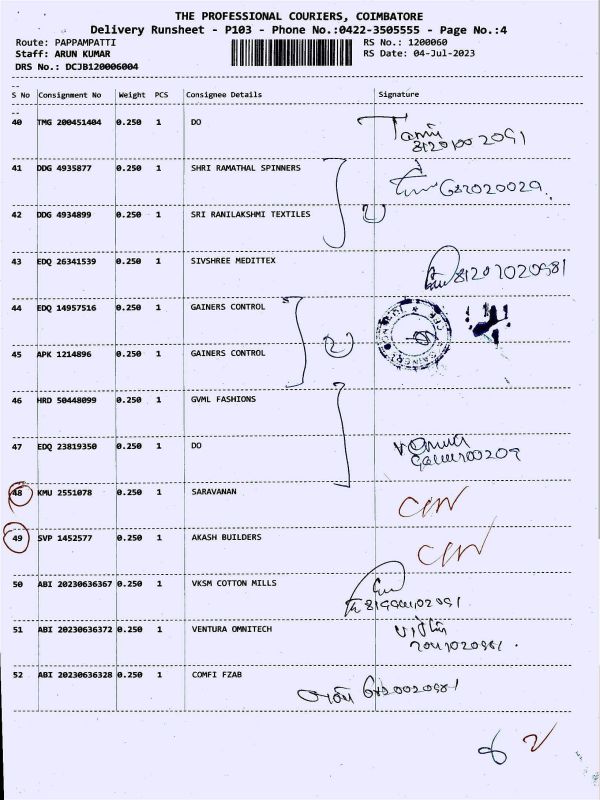 THE PROFESSIONAL COURIERS, COIMBATORE
Delivery Runsheet - P103 - Phone No.:0422-3505555 - Page No.:4
Route: PAPPAMPATTI RS No.: 1200060
Staff: ARUN KUMAR RS Date: 04-Jul-2023
DRS No.: DCJB120006004
S No Consignment No Weight PCS Consignee Details Signature
40 TMG 200451404 0.250 1 DO
41 DDG 4935877 0.250 1 SHRI RAMATHAL SPINNERS
42 DDG 4934899 0.250 1 SRI RANILAKSHMI TEXTILES
43 EDQ 26341539 0.250 1 SIVSHREE MEDITTEX
44 EDQ 14957516 0.250 1 GAINERS CONTROL
45 APK 1214896 0.250 1 GAINERS CONTROL
46 HRD 50448099 0.250 1 GVML FASHIONS
47 EDQ 23819350 0.250 1 DO
48 KMU 2551078 0.250 1 SARAVANAN
49 SVP 1452577 0.250 1 AKASH BUILDERS
50 ABI 20230636367 0.250 1 VKSM COTTON MILLS
51 ABI 20230636372 0.250 1 VENTURA OMNITECH
52 ABI 20230636328 0.250 1 COMFI FZAB